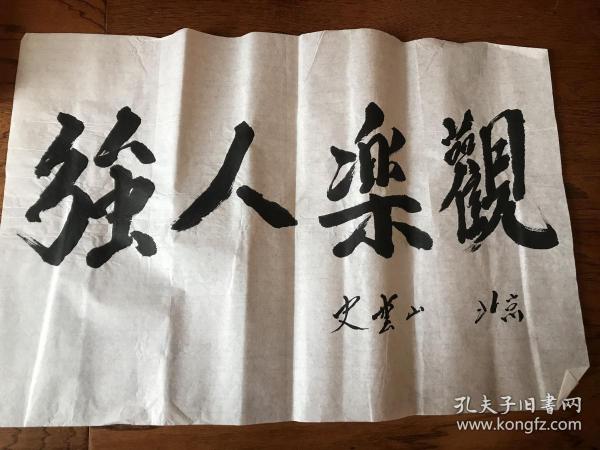 觀楽人強
北京
史雲山
孔夫子旧書网
www.kongfz.com